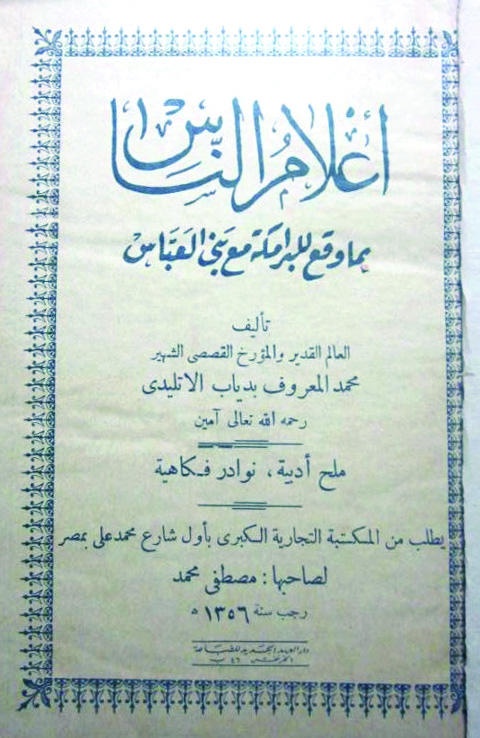 إعلام الناس
بما وقع للبرامكة مع بني العباس
تأليف
العالم القدير والمؤرخ القصصى الشهير
محمد المعروف بدياب الاتليدى
رحمه الله تعالى آمين
ملح أدبية، نوادر فكاهية
يطلب من المكتبة التجارية الكبرى بأول شارع محمد على بمصر
لصاحبها: مصطفى محمد
رجب سنة ١٣٥٦ ه
دار العهد الجديد للطباعة